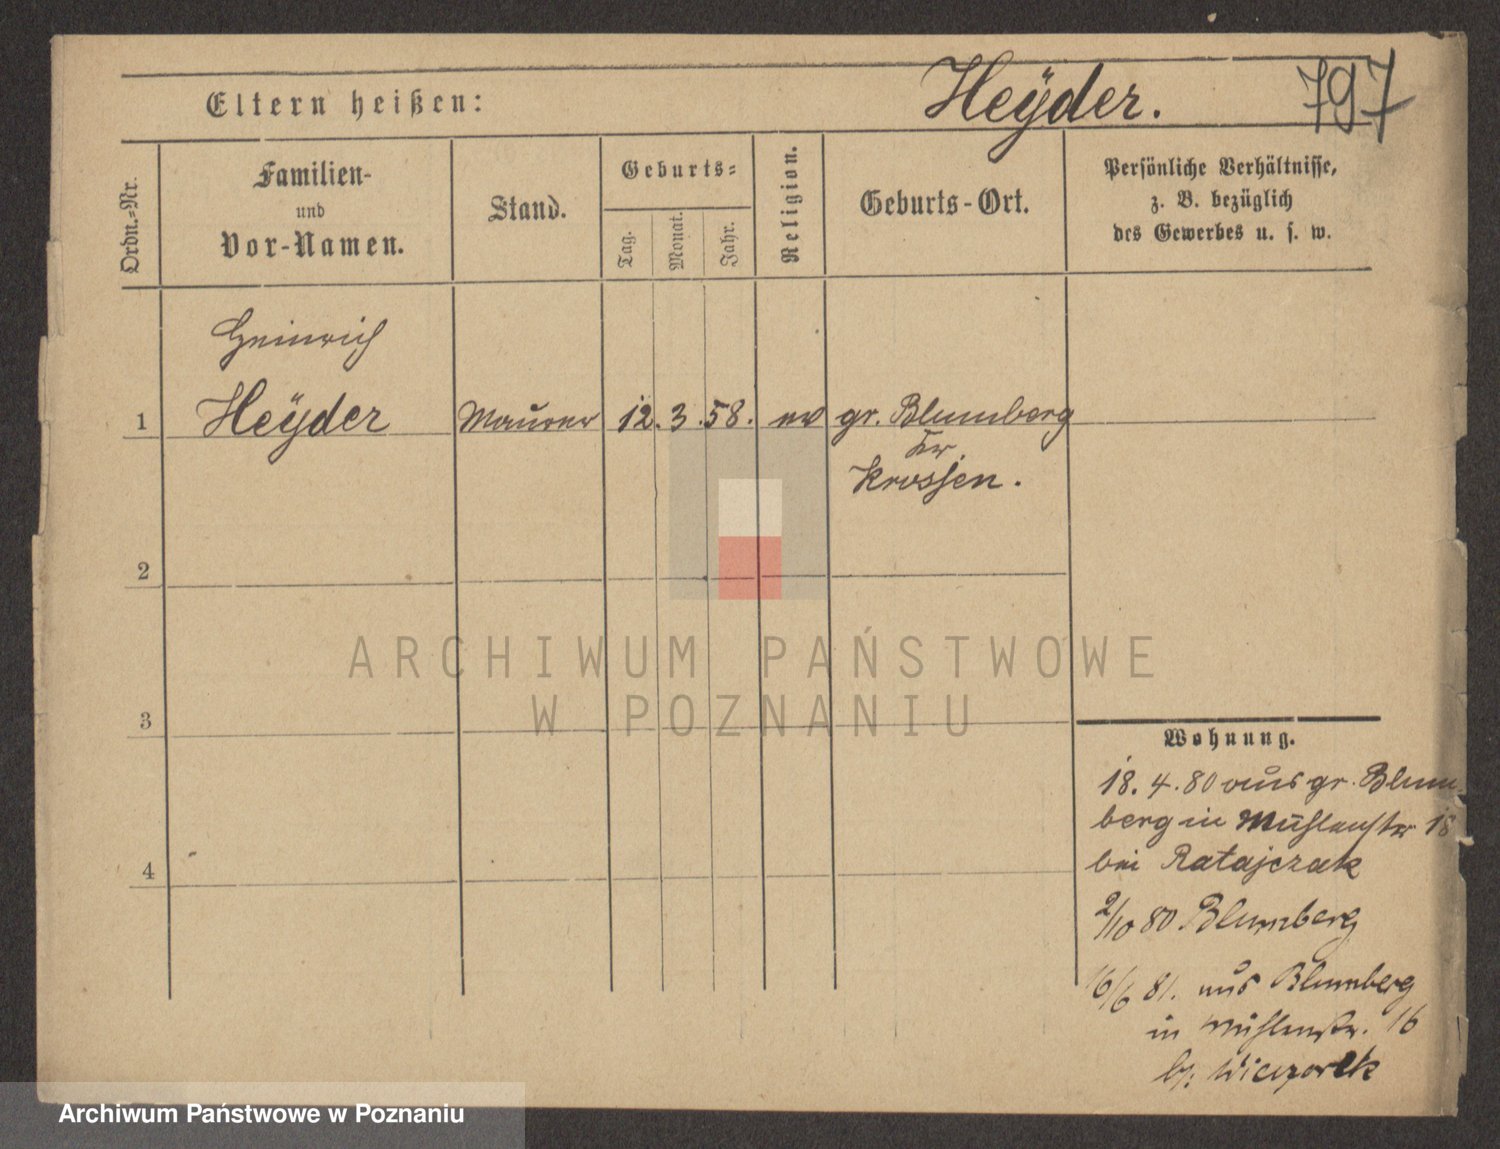 Eltern heißen:
Heÿder.
797
Ordn.-Nr.
Familien-
und
Vor-Namen.
Stand.
Geburts-
Tag.
Monat.
Jahr.
Religion.
Geburts-Ort.
Persönliche Verhältnisse,
z. B. bezüglich
des Gewerbes u. s. w.
Heinrich
1 Heÿder Maurer 12. 3. 58. ev gr. Blumberg
Kr
Krossen.
2
3
4
Wohnung.
18. 4. 80 aus gr. Blum
berg in Mühlenstr 18
bei Ratajczak
2/10 80 Blumberg
16/6 81. aus Blumberg
in Mühlenstr. 16
b/: Wieczorek
ARCHIWUM PAŃSTWOWE
W POZNANIU
Archiwum Państwowe w Poznaniu